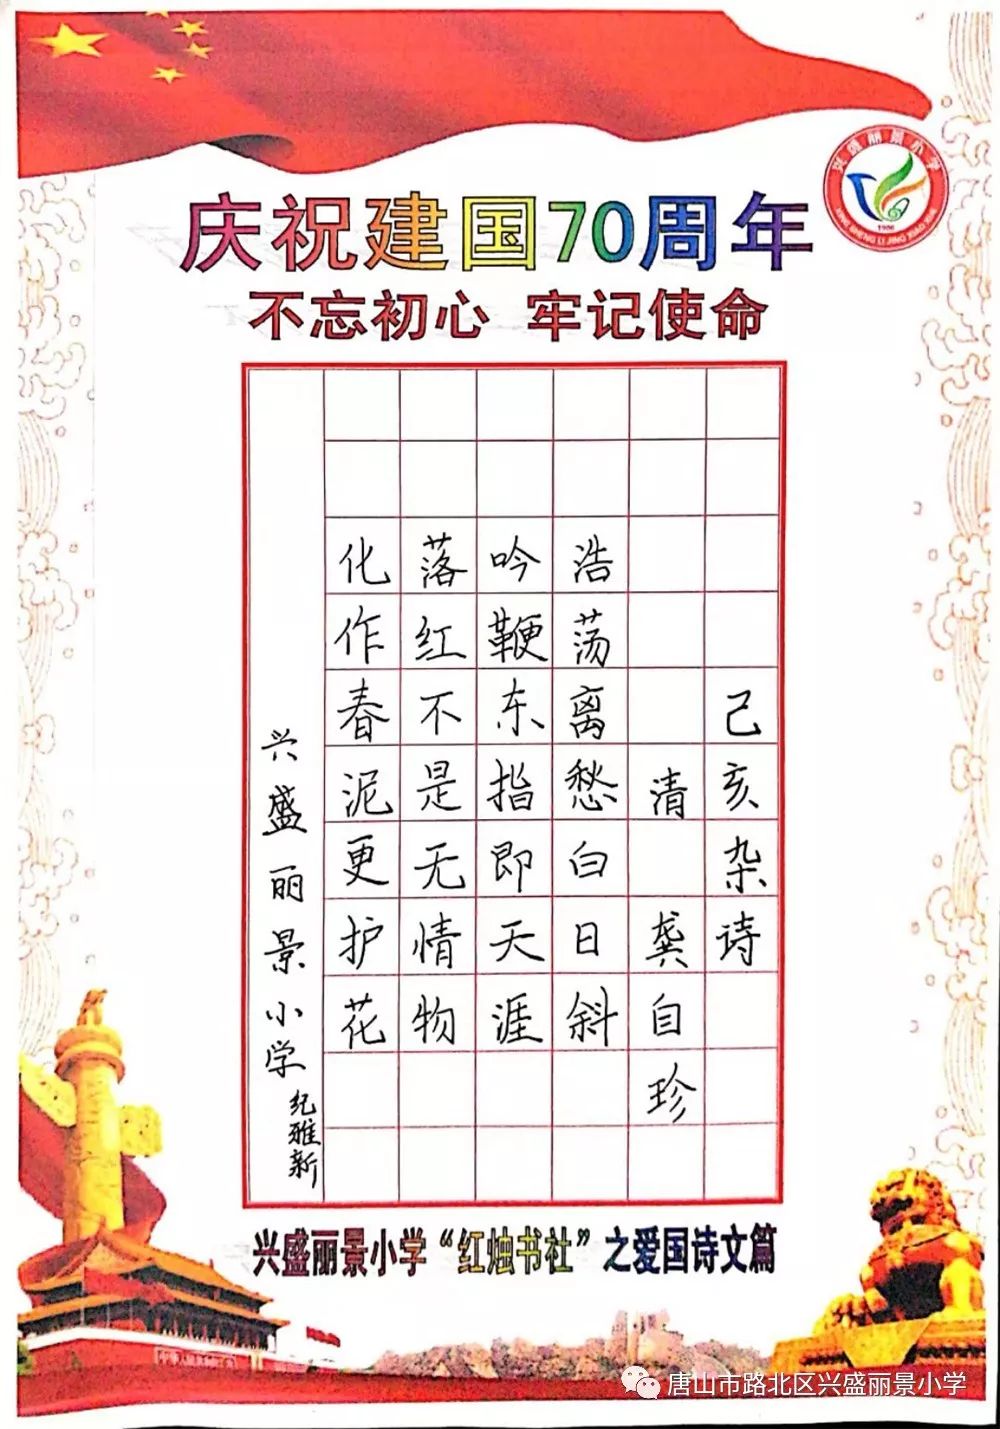 庆祝建国70周年
不忘初心 牢记使命
兴盛丽景小学
XING SHENG LI JING XIAO XUE
己亥杂诗
清 龚自珍
浩荡离愁白日斜
吟鞭东指即天涯
落红不是无情物
化作春泥更护花
兴盛丽景小学 纪雅新
兴盛丽景小学“红烛书社”之爱国诗文篇
唐山市路北区兴盛丽景小学